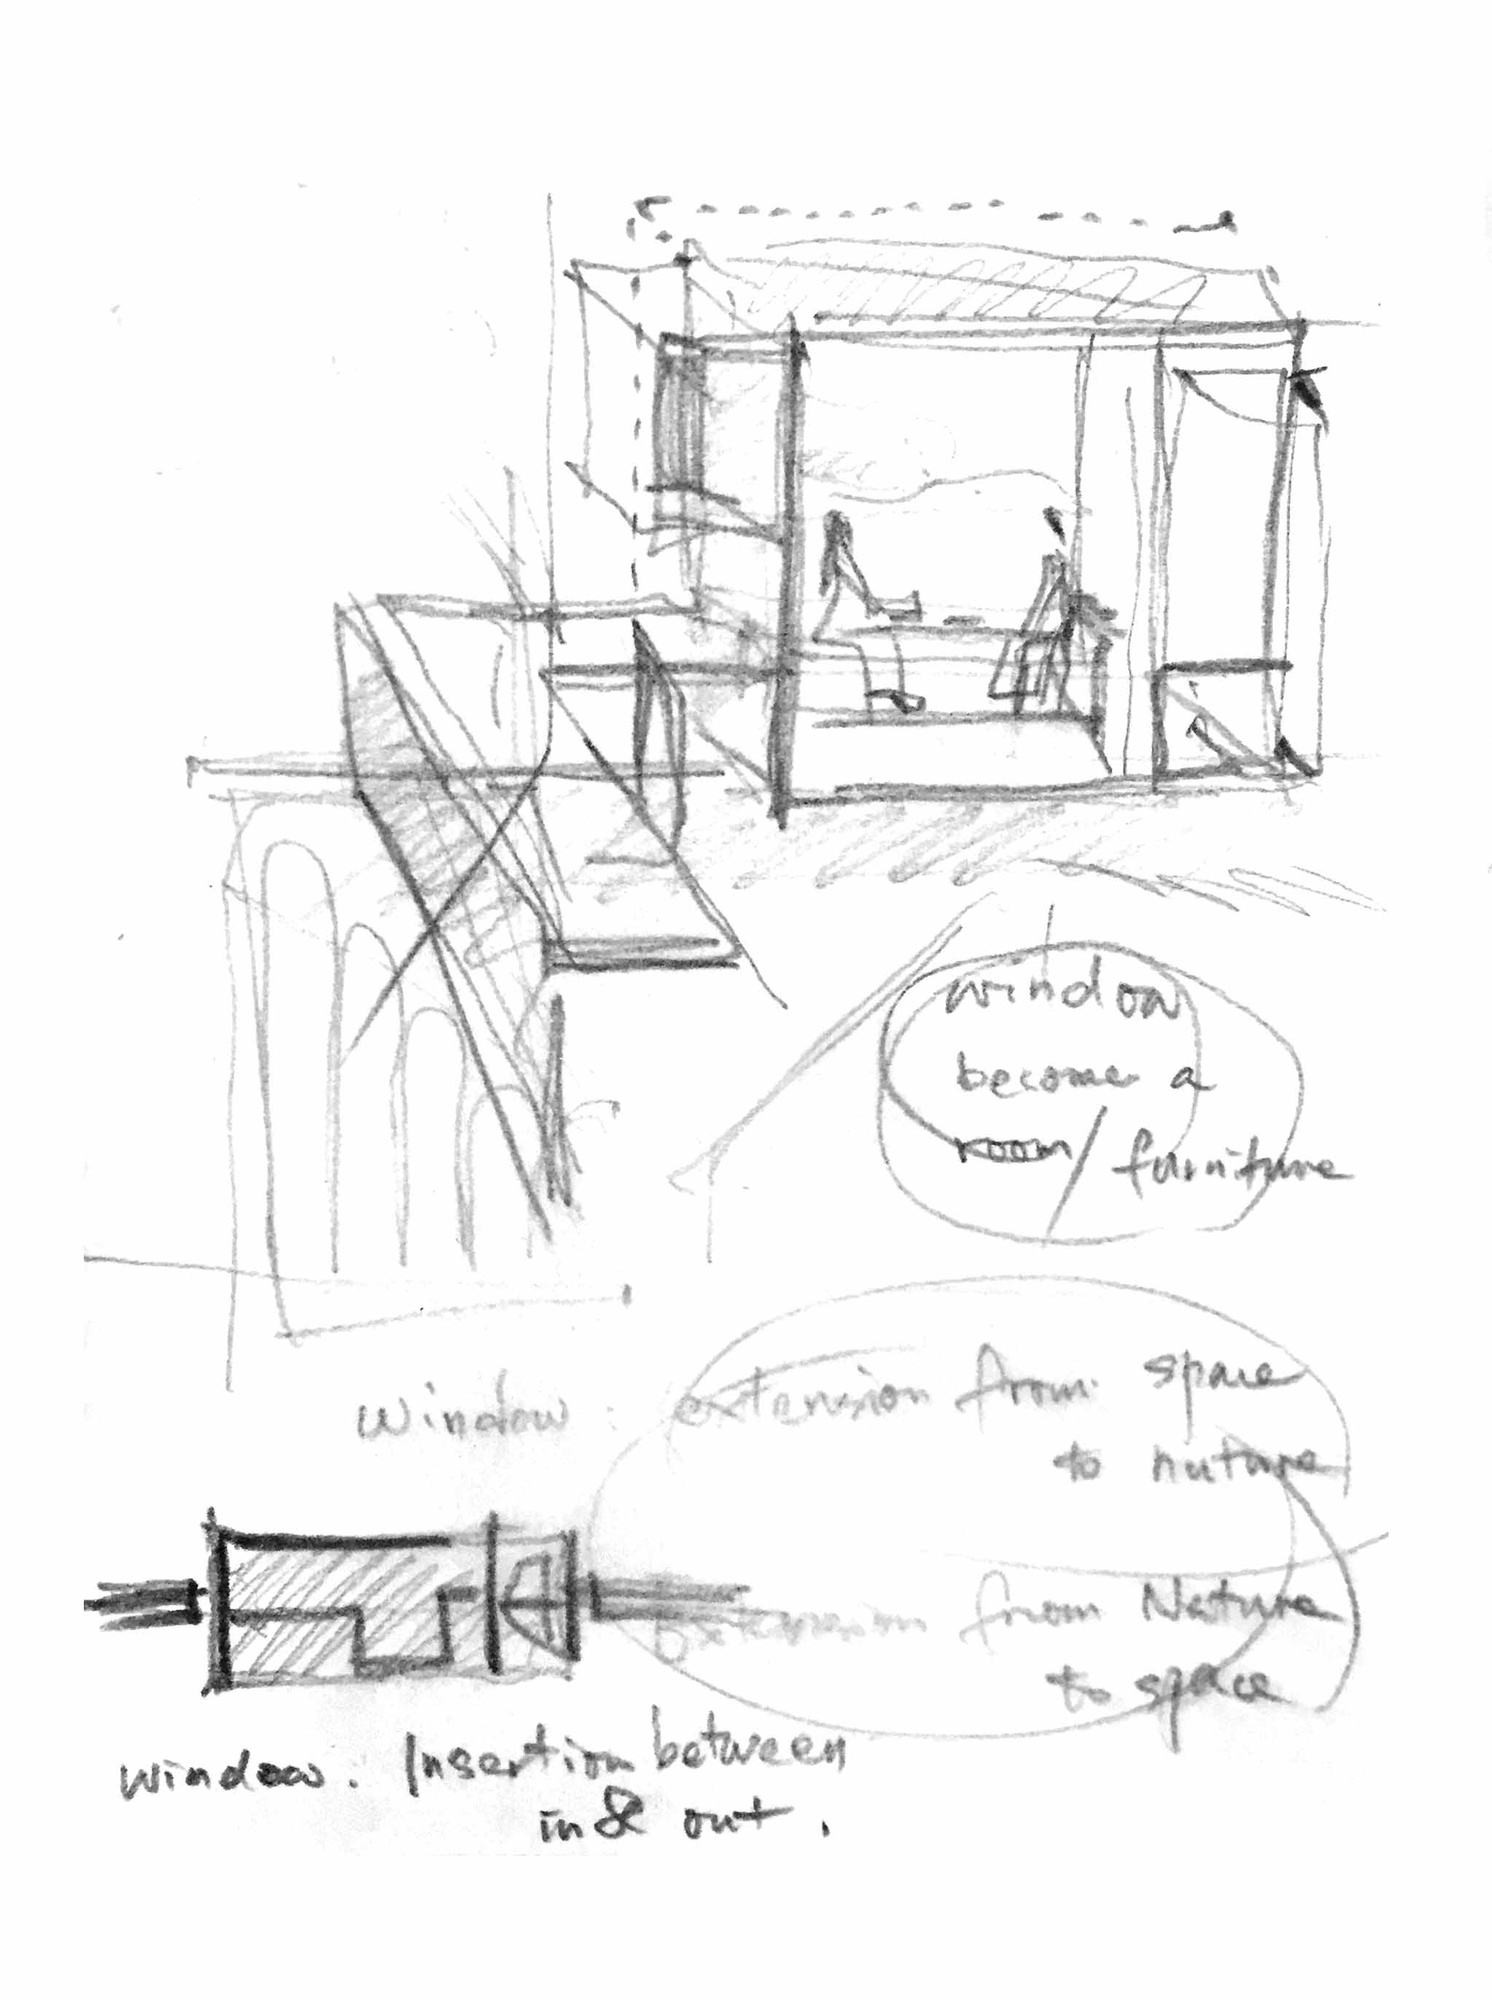 window
become a
room / furniture
Window : extension from space
to nature
Extension from Nature
to space
Window : Insertion between
in & out .